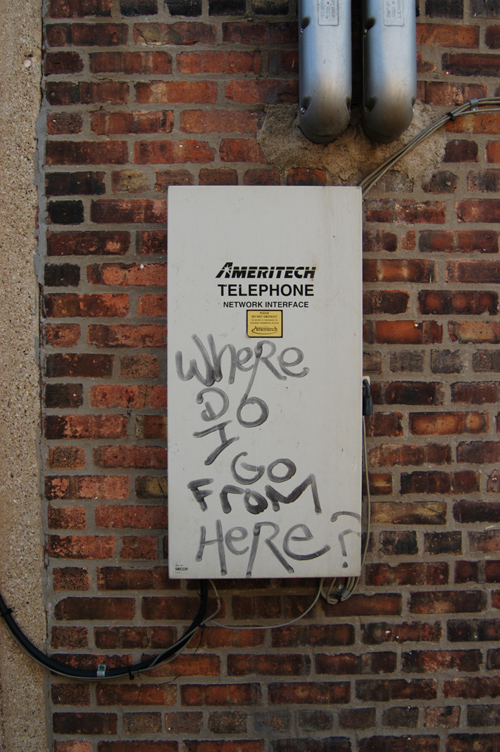 AMERITECH
TELEPHONE
NETWORK INTERFACE
Ameritech
WHeRe
DO
I
GO
FROM
HeRe?